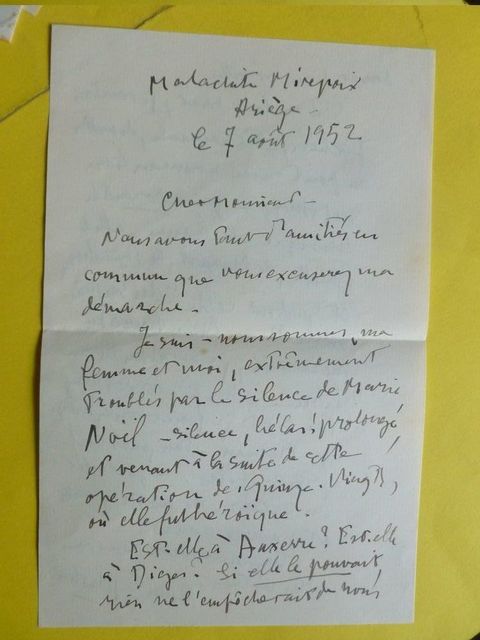 Maladite Mirepoix
Ariège -
le 7 août 1952
Cher Monsieur -
Nous avons tant d'amitiés en
commun que vous excuserez ma
démarche -
Je suis - nous sommes, ma
femme et moi, extrêmement
troublés par le silence de Marie
Noël - silence, hélas! prolongé
et venant à la suite de cette
opération de Quinze-Vingts,
où elle fut héroïque.
Est-elle à Auxerre? Est-elle
à Diges? Si elle le pouvait,
rien ne l'empêcherait de nous